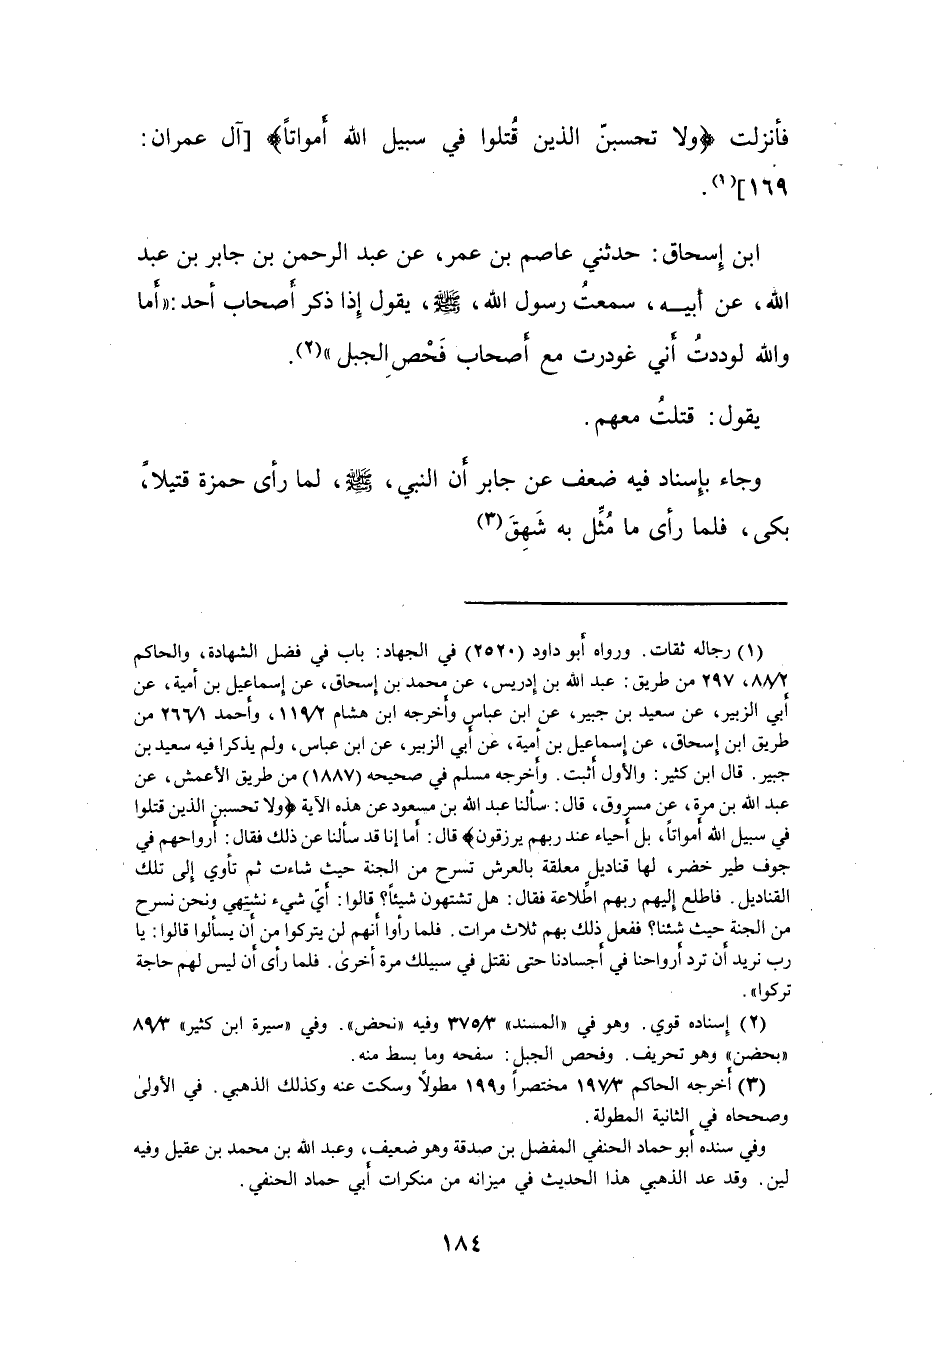 فأنزلت ﴿ولا تحسبنّ الذين قُتلوا في سبيل الله أمواتاً﴾ [آل عمران:
١٦٩](١).
ابن إسحاق: حدثني عاصم بن عمر، عن عبد الرحمن بن جابر بن عبد
الله، عن أبيه، سمعتُ رسول الله، ﷺ، يقول إذا ذكر أصحاب أحد: «أما
والله لوددتُ أني غودرت مع أصحاب فَحْص الجبل»(٢).
يقول: قتلتُ معهم.
وجاء بإسناد فيه ضعف عن جابر أن النبي، ﷺ، لما رأى حمزة قتيلاً،
بكى، فلما رأى ما مُثِّل به شَهِقَ(٣)
(١) رجاله ثقات. ورواه أبو داود (٢٥٢٠) في الجهاد: باب في فضل الشهادة، والحاكم
٨٨/٢، ٢٩٧ من طريق: عبد الله بن إدريس، عن محمد بن إسحاق، عن إسماعيل بن أمية، عن
أبي الزبير، عن سعيد بن جبير، عن ابن عباس وأخرجه ابن هشام ١١٩/٢، وأحمد ٢٦٦/١ من
طريق ابن إسحاق، عن إسماعيل بن أمية، عن أبي الزبير، عن ابن عباس، ولم يذكرا فيه سعيد بن
جبير. قال ابن كثير: والأول أثبت. وأخرجه مسلم في صحيحه (١٨٨٧) من طريق الأعمش، عن
عبد الله بن مرة، عن مسروق، قال: سألنا عبد الله بن مسعود عن هذه الآية ﴿ولا تحسبن الذين قتلوا
في سبيل الله أمواتاً، بل أحياء عند ربهم يرزقون﴾ قال: أما إنا قد سألنا عن ذلك فقال: أرواحهم في
جوف طير خضر، لها قناديل معلقة بالعرش تسرح من الجنة حيث شاءت ثم تأوي إلى تلك
القناديل. فاطلع إليهم ربهم اطِّلاعة فقال: هل تشتهون شيئاً؟ قالوا: أيّ شيء نشتهي ونحن نسرح
من الجنة حيث شئنا؟ ففعل ذلك بهم ثلاث مرات. فلما رأوا أنهم لن يتركوا من أن يسألوا قالوا: يا
رب نريد أن ترد أرواحنا في أجسادنا حتى نقتل في سبيلك مرة أخرى. فلما رأى أن ليس لهم حاجة
تركوا».
(٢) إسناده قوي. وهو في «المسند» ٣٧٥/٣ وفيه «نحض». وفي «سيرة ابن كثير» ٨٩/٣
«بحضن» وهو تحريف. وفحص الجبل: سفحه وما بسط منه.
(٣) أخرجه الحاكم ١٩٧/٣ مختصراً و١٩٩ مطولاً وسكت عنه وكذلك الذهبي. في الأولى
وصححاه في الثانية المطولة.
وفي سنده أبو حماد الحنفي المفضل بن صدقة وهو ضعيف، وعبد الله بن محمد بن عقيل وفيه
لين. وقد عد الذهبي هذا الحديث في ميزانه من منكرات أبي حماد الحنفي.
١٨٤